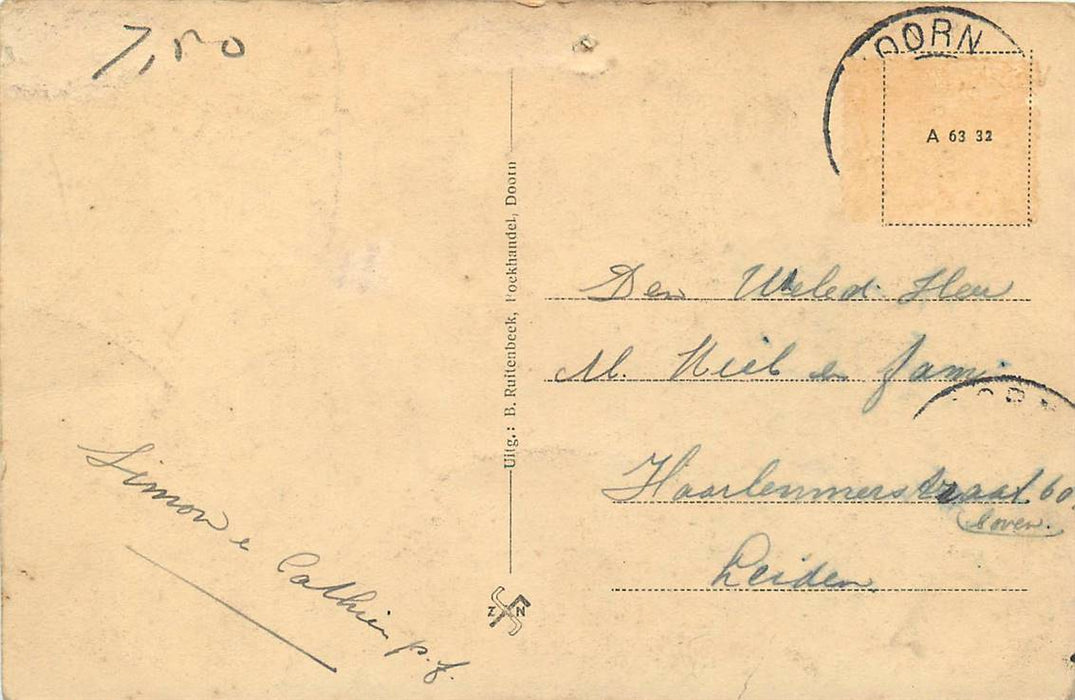 7,50
DOORN
A 63 32
Uitg.: B. Ruitenbeek, Boekhandel, Doorn
Den Weled. Heer
M. Kiel en fam.
Haarlemmerstraat 60
boven.
Leiden
Simon e Cathien p.f.
Z N